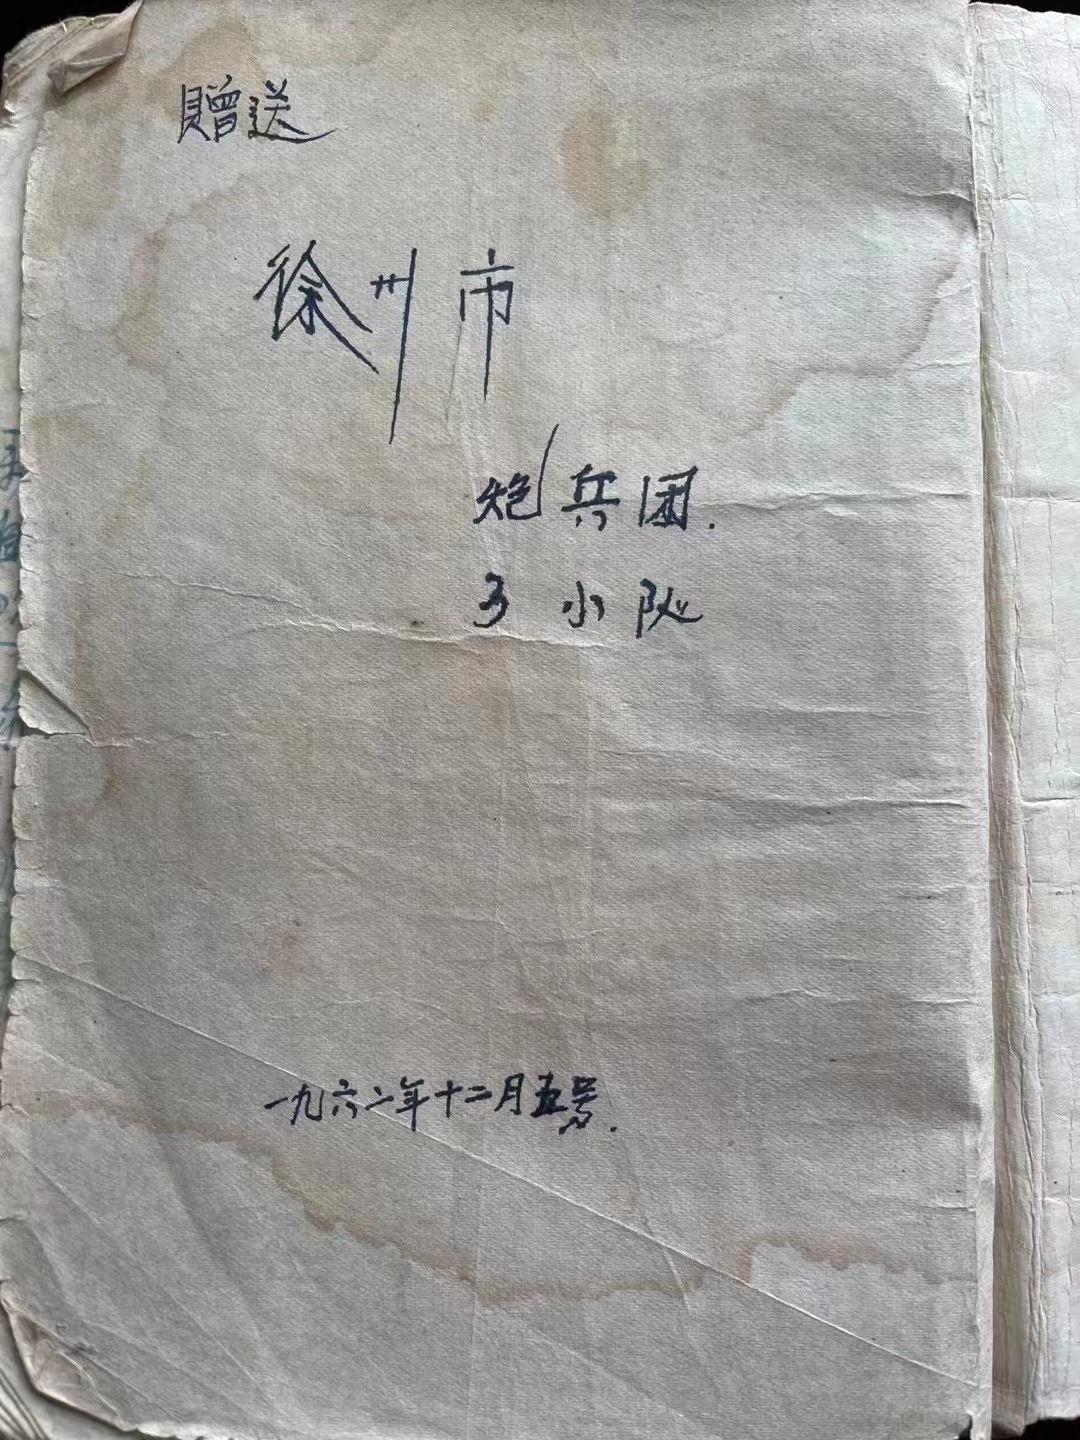 贈送
徐州市
炮兵团.
3小队
一九六二年十二月五号.